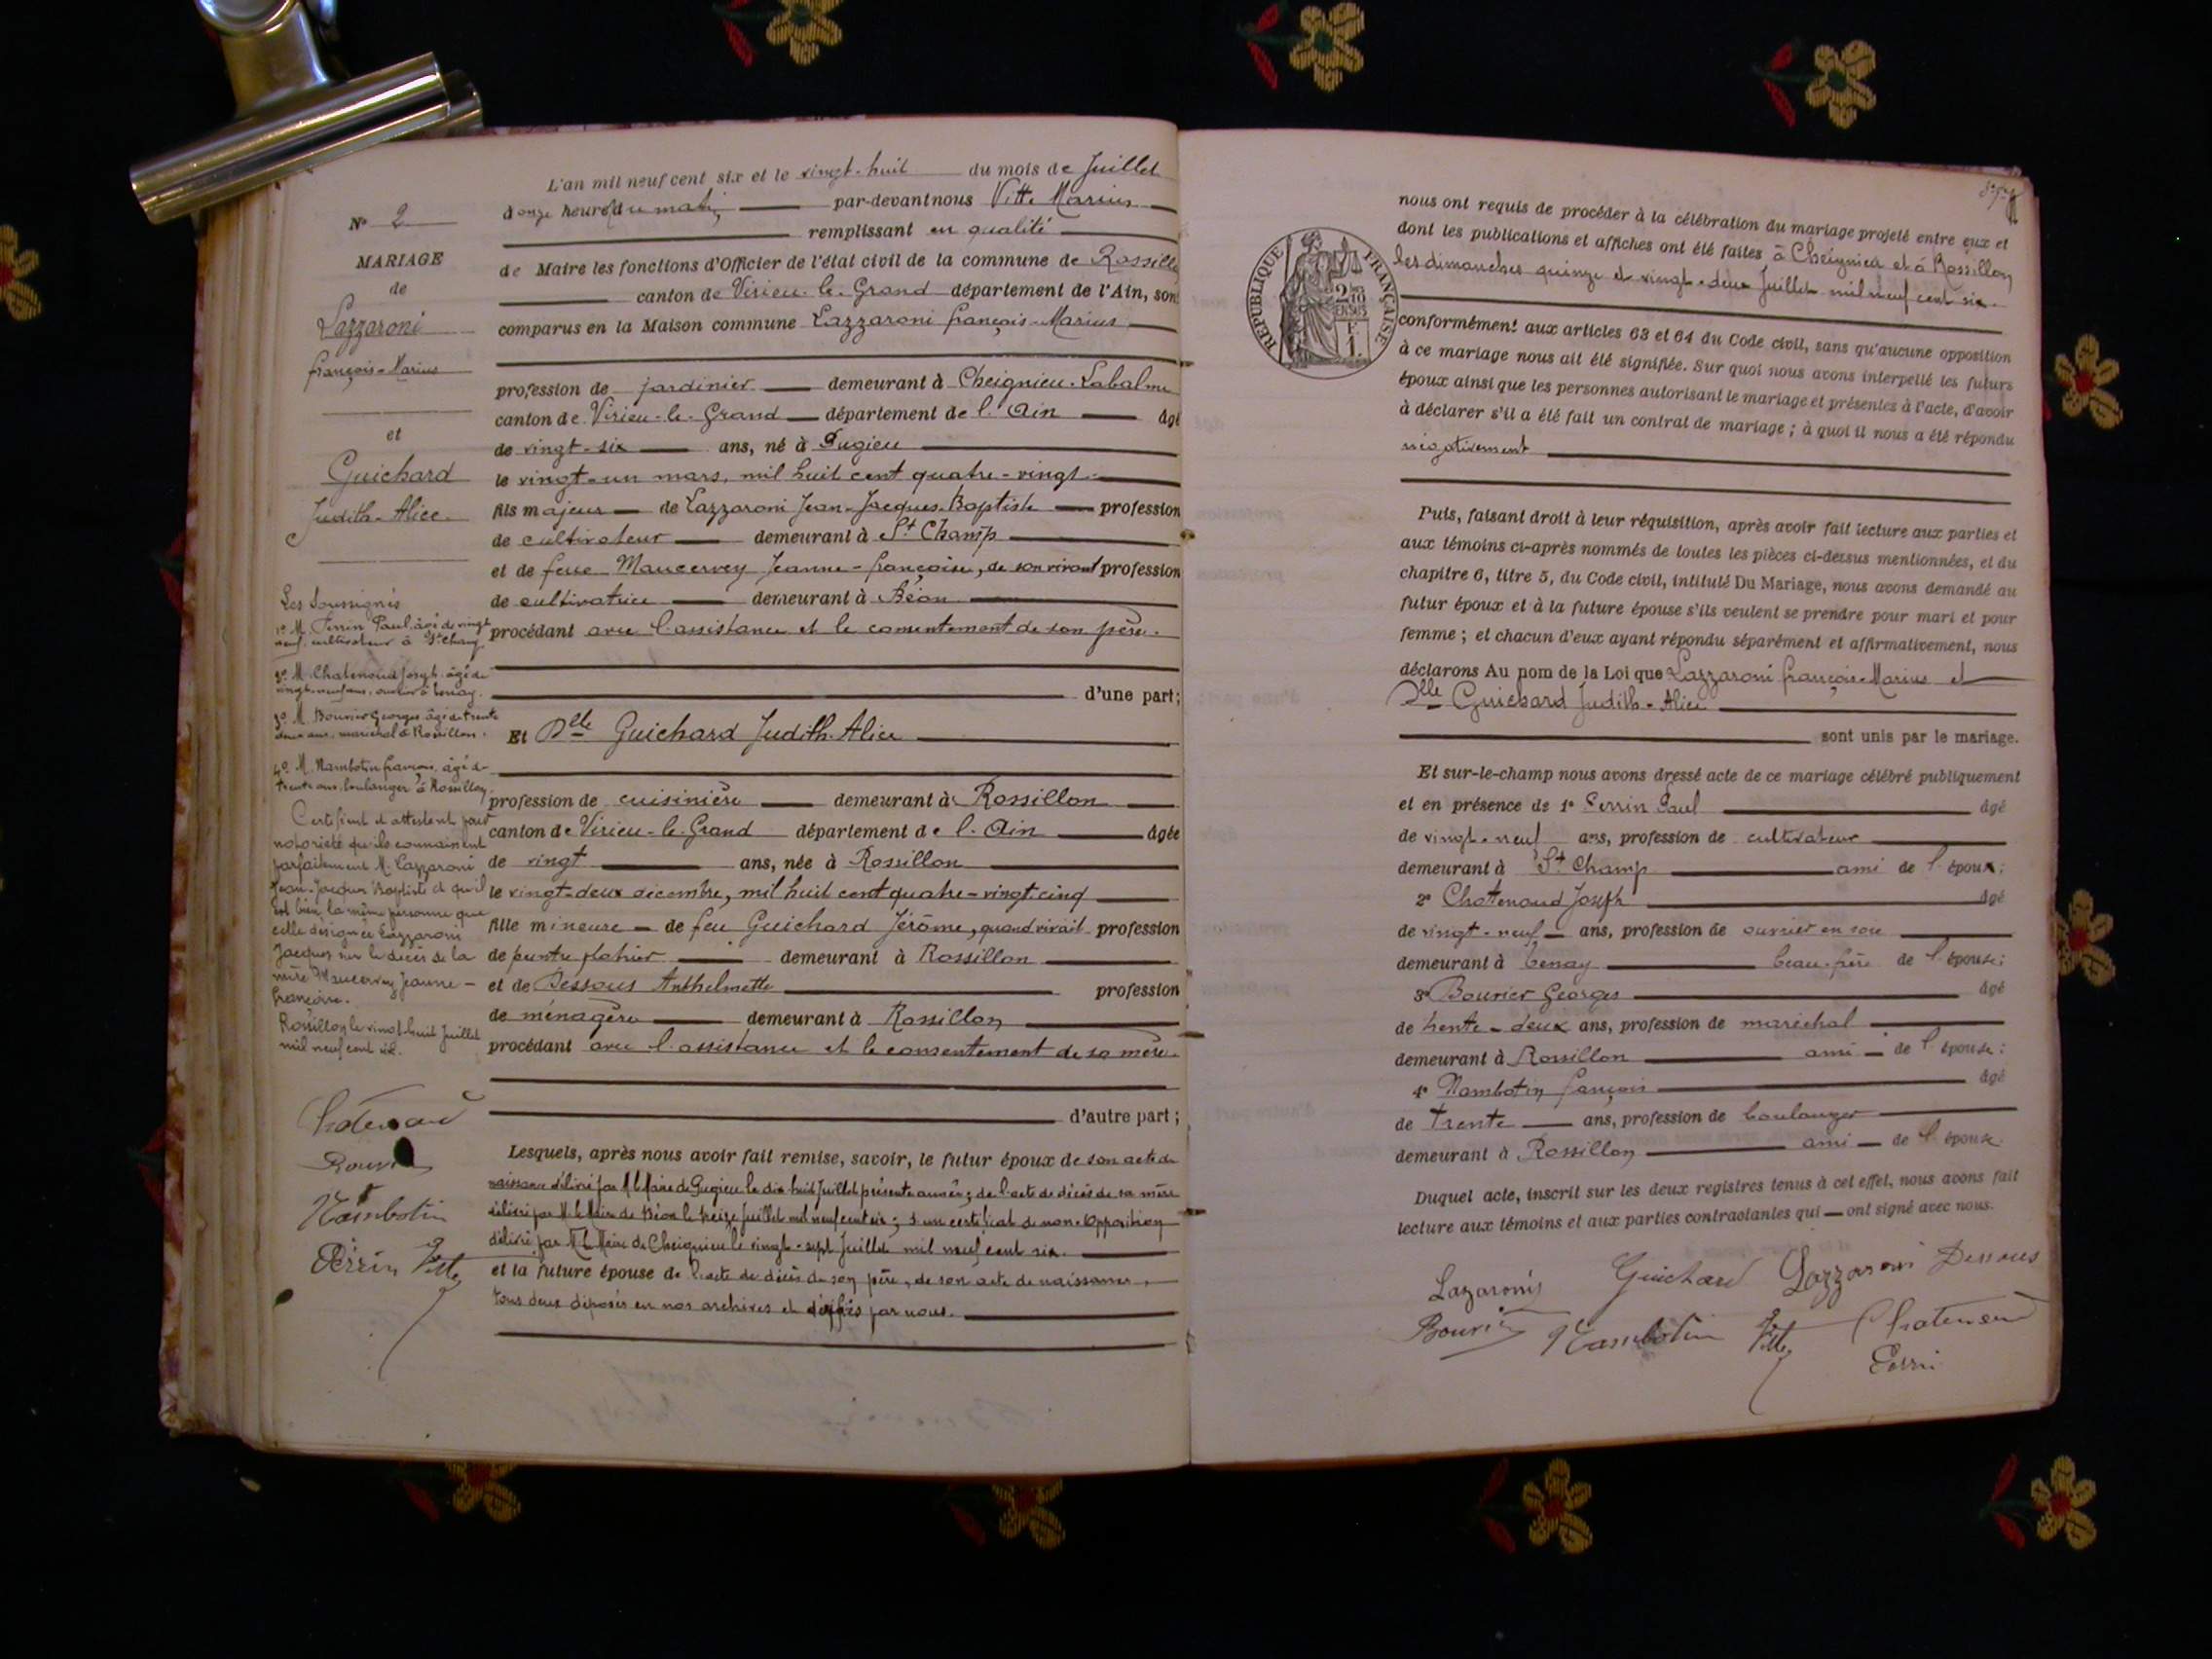 N° 2
MARIAGE
de
Lazzaroni
françois-Marius
et
Guichard
Judith-Alice
Les Soussignés
1° M. Perrin Paul, âgé de vingt
neuf, cultivateur à St Champ
2° M. Chatenoud Joseph, âgé de
vingt-neuf ans, ouvrier à Tenay.
3° M. Bouvier Georges âgé de trente
deux ans, maréchal à Rossillon.
4° M. Nambotin françois, âgé de
trente ans, boulanger à Rossillon
Certifient et attestent pour
notoriété qu'ils connaissent
parfaitement M. Lazzaroni
Jean-Jacques Baptiste et qu'il
est bien la même personne que
celle désignée Lazzaroni
Jacques sur le décès de la
mère Maucervey Jeanne-
françoise.
Rossillon le vingt-huit Juillet
mil neuf cent six.
Chatenoud
Bouvier
Nambotin
Perrin Vitte
L'an mil neuf cent six et le vingt-huit du mois de Juillet
à onze heures du matin par-devant nous Vitte Marius
remplissant en qualité
de Maire les fonctions d'Officier de l'état civil de la commune de Rossillon
canton de Virieu-le-Grand département de l'Ain, sont
comparus en la Maison commune Lazzaroni françois-Marius
profession de jardinier demeurant à Cheignieu-Labalme
canton de Virieu-le-Grand département de l'Ain âgé
de vingt-six ans, né à Pugieu
le vingt-un mars, mil huit cent quatre-vingt
fils majeur de Lazzaroni Jean-Jacques-Baptiste profession
de cultivateur demeurant à St Champ
et de feue Maucervey Jeanne-françoise, de son vivant profession
de cultivatrice demeurant à Béon
procédant avec l'assistance et le consentement de son père.
d'une part;
Et Dlle Guichard Judith-Alice
profession de cuisinière demeurant à Rossillon
canton de Virieu-le-Grand département de l'Ain âgée
de vingt ans, née à Rossillon
le vingt-deux décembre, mil huit cent quatre-vingt-cinq
fille mineure de feu Guichard Jérôme, quand vivait profession
de peintre plâtrier demeurant à Rossillon
et de Dessous Anthelmette profession
de ménagère demeurant à Rossillon
procédant avec l'assistance et le consentement de sa mère.
d'autre part;
Lesquels, après nous avoir fait remise, savoir, le futur époux de son acte de
naissance délivré par M. le Maire de Pugieu le dix huit Juillet présente année; de l'acte de décès de sa mère
délivré par M. le Maire de Béon le treize Juillet mil neuf cent six; d'un certificat de non-opposition
délivré par M. le Maire de Cheignieu le vingt-sept Juillet mil neuf cent six.
et la future épouse de l'acte de décès de son père, de son acte de naissance,
tous deux déposés en nos archives et par nous.
RÉPUBLIQUE FRANÇAISE
2/10
EN SUS
F.
1.
nous ont requis de procéder à la célébration du mariage projeté entre eux et
dont les publications et affiches ont été faites à Cheignieu et à Rossillon
les dimanches quinze et vingt-deux Juillet mil neuf cent six.
conformément aux articles 63 et 64 du Code civil, sans qu'aucune opposition
à ce mariage nous ait été signifiée. Sur quoi nous avons interpellé les futurs
époux ainsi que les personnes autorisant le mariage et présentes à l'acte, d'avoir
à déclarer s'il a été fait un contrat de mariage; à quoi il nous a été répondu
négativement
Puis, faisant droit à leur réquisition, après avoir fait lecture aux parties et
aux témoins ci-après nommés de toutes les pièces ci-dessus mentionnées, et du
chapitre 6, titre 5, du Code civil, intitulé Du Mariage, nous avons demandé au
futur époux et à la future épouse s'ils veulent se prendre pour mari et pour
femme; et chacun d'eux ayant répondu séparément et affirmativement, nous
déclarons Au nom de la Loi que Lazzaroni françois-Marius et
Dlle Guichard Judith-Alice
sont unis par le mariage.
Et sur-le-champ nous avons dressé acte de ce mariage célébré publiquement
et en présence de 1° Perrin Paul âgé
de vingt-neuf ans, profession de cultivateur
demeurant à St Champ ami de l'époux;
2° Chatenoud Joseph âgé
de vingt-neuf ans, profession de ouvrier en soie
demeurant à Tenay beau-frère de l'épouse;
3° Bouvier Georges âgé
de trente-deux ans, profession de maréchal
demeurant à Rossillon ami de l'épouse;
4° Nambotin françois âgé
de trente ans, profession de boulanger
demeurant à Rossillon ami de l'épouse.
Duquel acte, inscrit sur les deux registres tenus à cet effet, nous avons fait
lecture aux témoins et aux parties contractantes qui ont signé avec nous.
Lazaronis Guichard Lazzaroni Dessous
Bouvier Nambotin Vitte Chatenoud
Perrin